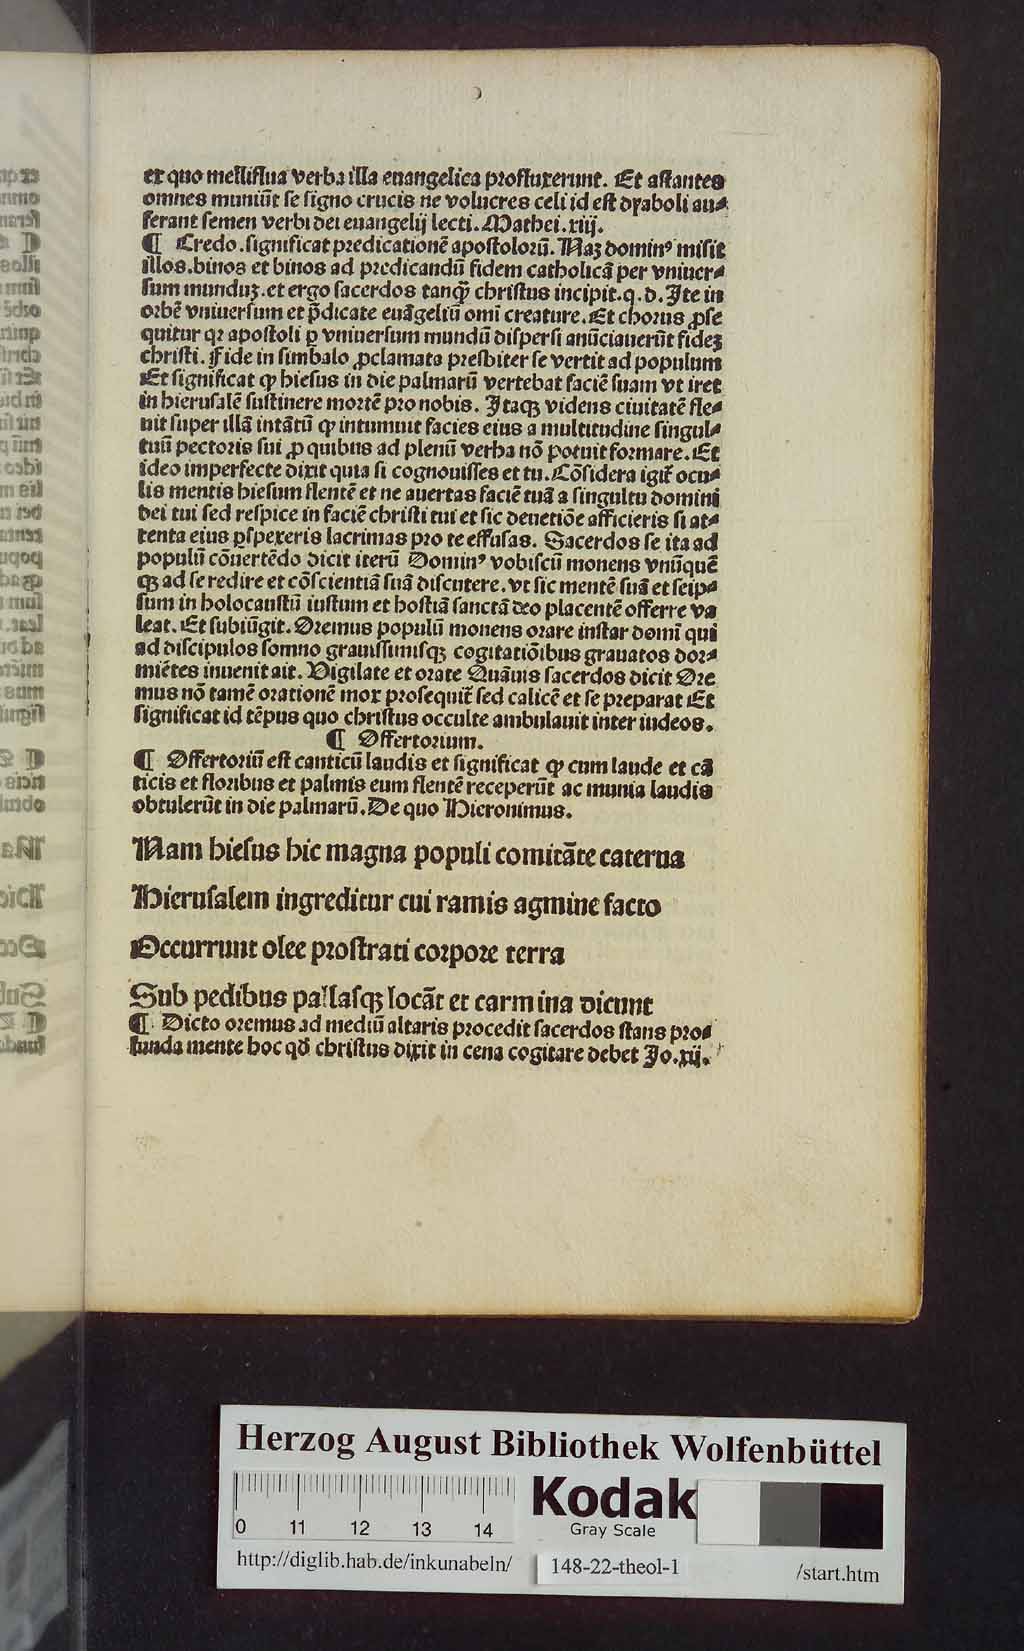 ex quo melliflua verba illa euangelica profluxerunt. Et astantes
omnes muniūt se signo crucis ne volucres celi id est dyaboli au⸗
ferant semen verbi dei euangelij lecti. Mathei. xiij.
¶ Credo. significat predicationē apostolorū. Naʒ dominꝰ misit
illos. binos et binos ad predicandū fidem catholicā per vniuer⸗
sum munduʒ. et ergo sacerdos tanꝙ̄ christus incipit. q. d. Ite in
orbē vniuersum et p̄dicate euāgeliū omi creature. Et chorus ꝓse
quitur qꝛ apostoli ꝑ vniuersum mundū dispersi anūciauerūt fideʒ
christi. Fide in simbalo ꝓclamata presbiter se vertit ad populum
Et significat ꝙ hiesus in die palmarū vertebat faciē suam vt iret
in hierusalē sustinere mortē pro nobis. Itaqʒ videns ciuitatē fle⸗
uit super illā intātū ꝙ intumuit facies eius a multitudine singul⸗
tuū pectoris sui ꝓ quibus ad plenū verba nō potuit formare. Et
ideo imperfecte dixit quia si cognouisses et tu. Cōsidera igit̃ ocu⸗
lis mentis hiesum flentē et ne auertas faciē tuā a singultu domini
dei tui sed respice in faciē christi tui et sic deuetiōe afficieris si at⸗
tenta eius ꝑspexeris lacrimas pro te effusas. Sacerdos se ita ad
populū cōuertēdo dicit iterū Dominꝰ vobiscū monens vnūquē
qʒ ad se redire et cōscientiā suā discutere. vt sic mentē suā et seip⸗
sum in holocaustū iustum et hostiā sanctā deo placentē offerre va
leat. Et subiūgit. Oremus populū monens orare instar domī qui
ad discipulos somno grauissumisqʒ cogitatiōibus grauatos dor⸗
miētes inuenit ait. Vigilate et orate Quāuis sacerdos dicit Ore
mus nō tamē orationē mox prosequit̃ sed calicē et se preparat Et
significat id tēpus quo christus occulte ambulauit inter iudeos.
¶ Offertorium.
¶ Offertoriū est canticū laudis et significat ꝙ cum laude et cā
ticis et floribus et palmis eum flentē receperūt ac munia laudis
obtulerūt in die palmarū. De quo Hieronimus.
Nam hiesus hic magna populi comitāte caterua
Hierusalem ingreditur cui ramis agmine facto
Occurrunt olee prostrati corpore terra
Sub pedibus pallasqʒ locāt et carmina dicunt
¶ Dicto oremus ad mediū altaris procedit sacerdos stans pro⸗
funda mente hoc qd̄ christus dixit in cena cogitare debet Jo. xij.
Herzog August Bibliothek Wolfenbüttel
0 11 12 13 14
Kodak
Gray Scale
http://diglib.hab.de/inkunabeln/ 148-22-theol-1 /start.htm